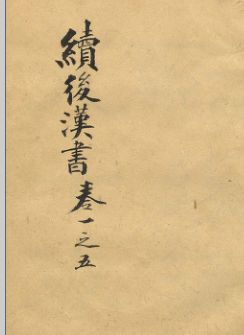 續後漢書卷一之五